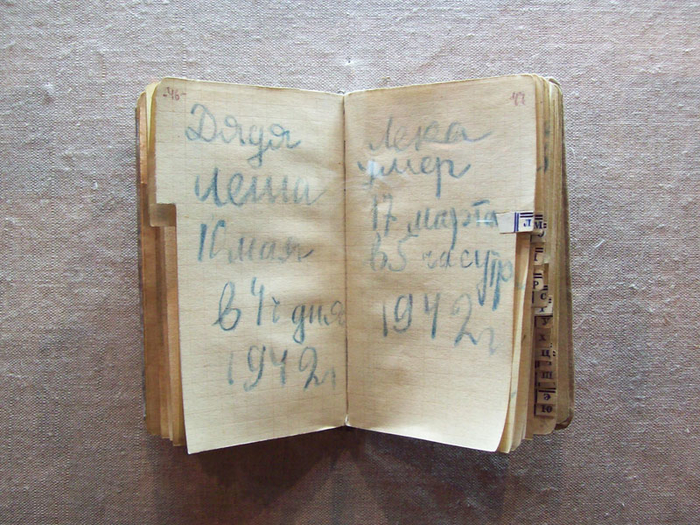 -46-
Дядя
Леша
10 мая
в 4 ч дня
1942 г
47
Лека
умер
17 марта
в 5 час утр
1942 г
Л М
Р
С
У
Х
Ц
Ш
Э
Ю